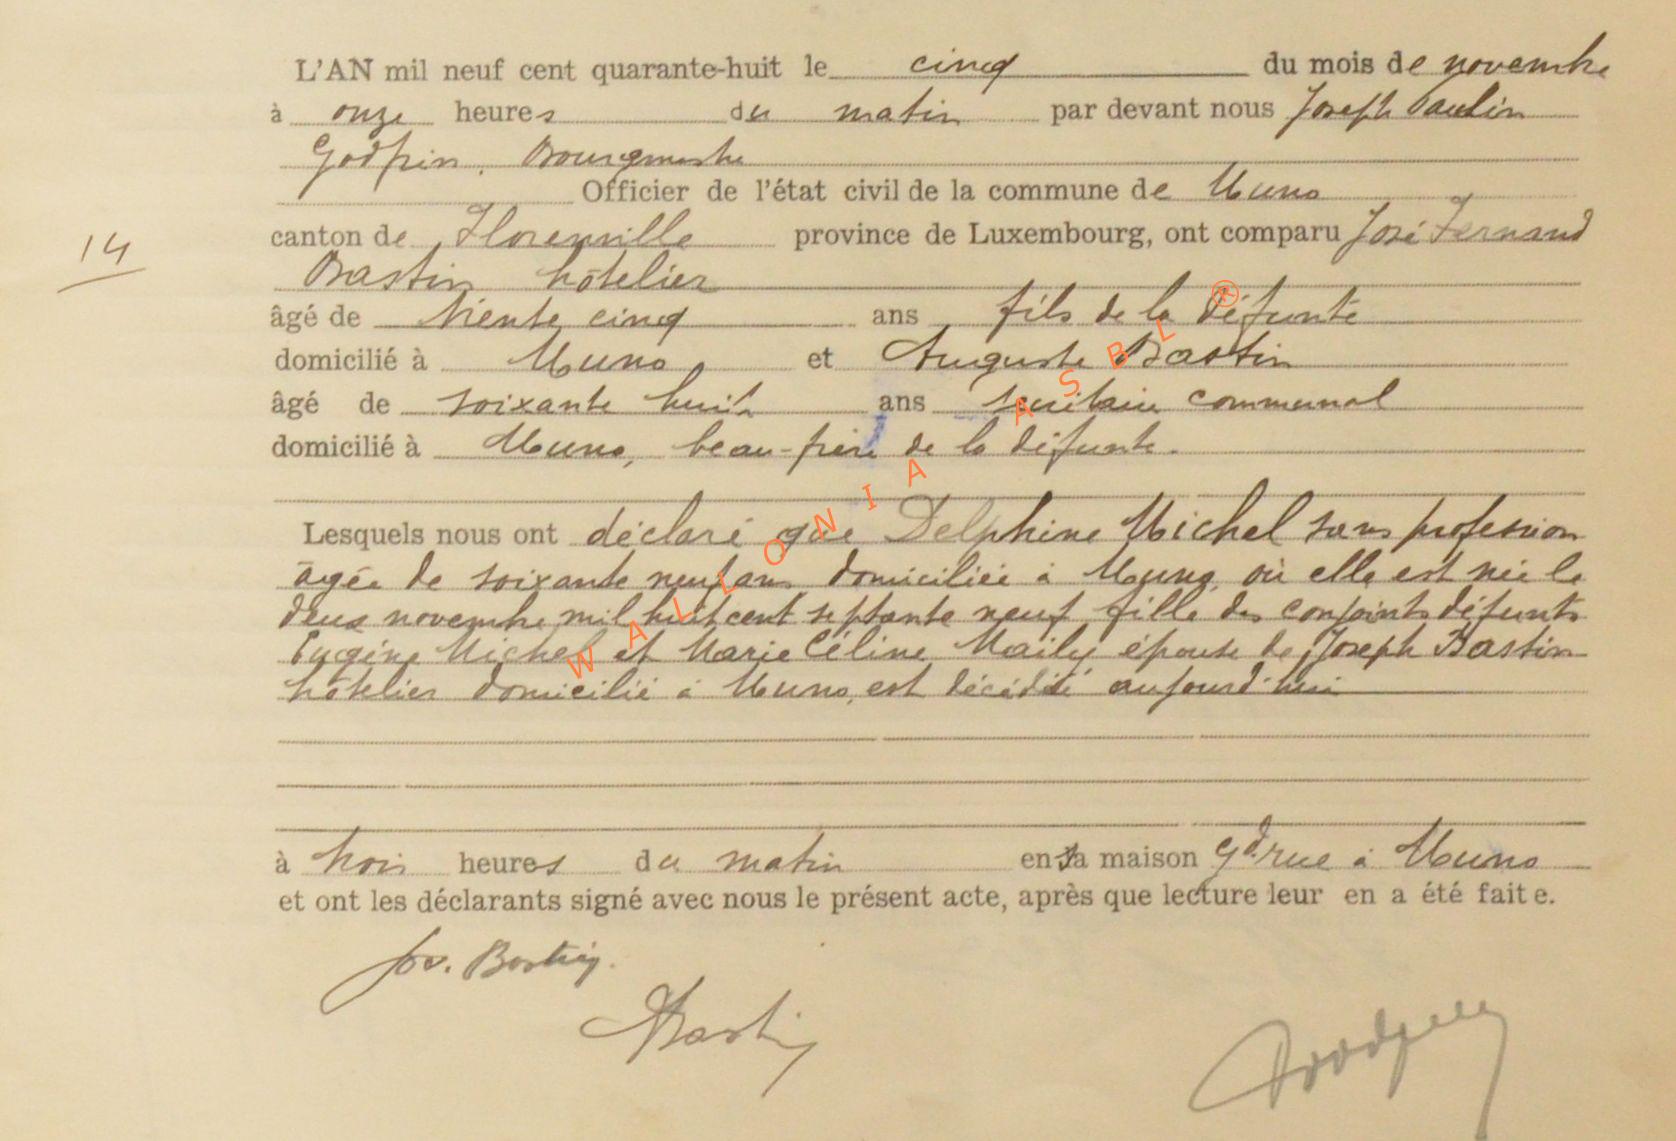 L'AN mil neuf cent quarante-huit le cinq du mois de novembre
à onze heures du matin par devant nous Joseph Paulin
Godfrin, Bourgmestre
Officier de l'état civil de la commune de Muno
14
canton de Florenville province de Luxembourg, ont comparu José Fernand
Bastin hôtelier
âgé de trente cinq ans fils de la défunte
domicilié à Muno et Auguste Bastin
âgé de soixante huit ans secrétaire communal
domicilié à Muno, beau-frère de la défunte.
Lesquels nous ont déclaré que Delphine Michel sans profession
âgée de soixante neuf ans domiciliée à Muno où elle est née le
deux novembre mil huit cent septante neuf fille des conjoints défunts
Eugène Michel et Marie Céline Maily épouse de Joseph Bastin
hôtelier domicilié à Muno, est décédée aujourd'hui
à trois heures du matin en sa maison Gd rue à Muno
et ont les déclarants signé avec nous le présent acte, après que lecture leur en a été faite.
Jos. Bastin.
ABastin
Godfrin
WALLONIA ASBL ®